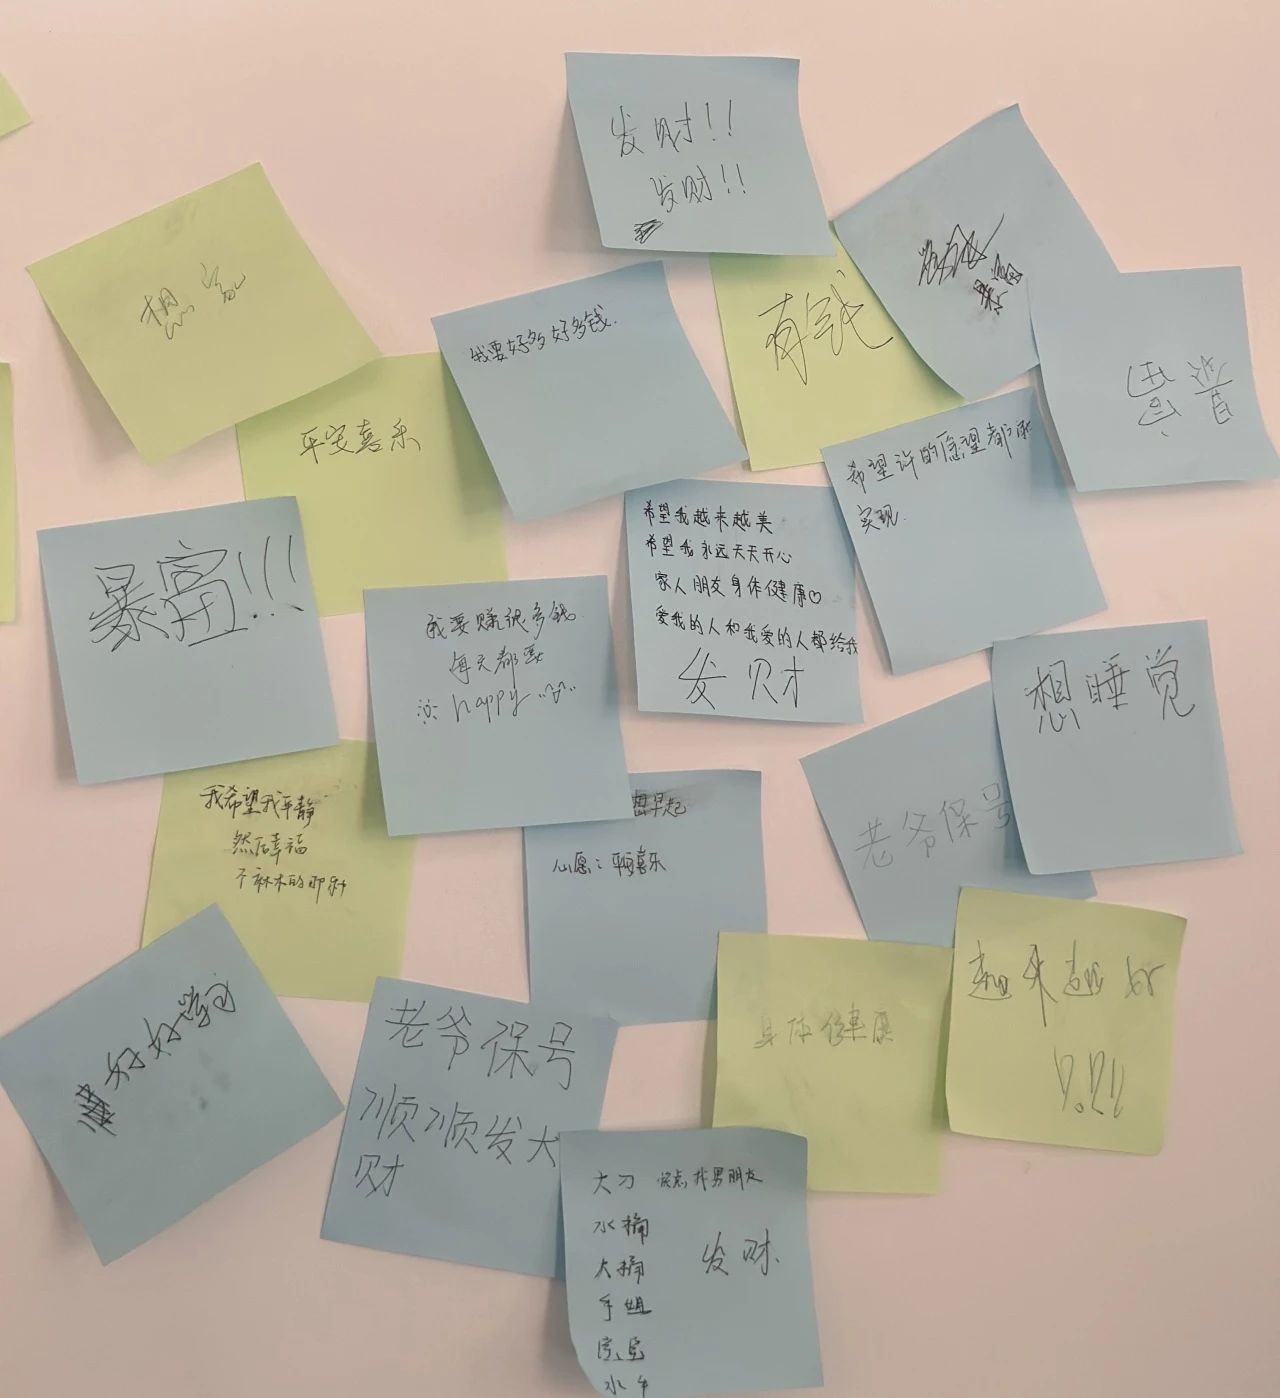 发财!!
发财!!
想家
我要好多好多钱.
有钱
暴富
平安喜乐
希望许的愿望都
实现.
希望我越来越美
希望我永远天天开心
家人朋友身体健康♡
爱我的人和我爱的人都给我
发财
暴富!!!
我要赚很多钱.
每天都要
happy
想睡觉
我希望我平静
然后幸福
不麻木的那种
早起
心愿:平安喜乐
老爷保号
越来越好
身体健康
好好学习
老爷保号
顺顺发大
财
大刀 快点找男朋友
水桶
大桶
发财.